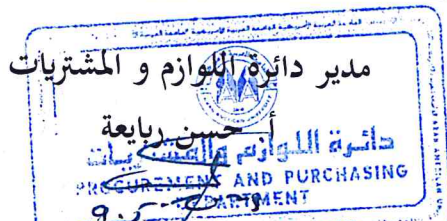 مدير دائرة اللوازم و المشتريات
أ حسن ربايعة
دائرة اللوازم والمشتريات
PROCUREMENT AND PURCHASING
DEPARTMENT